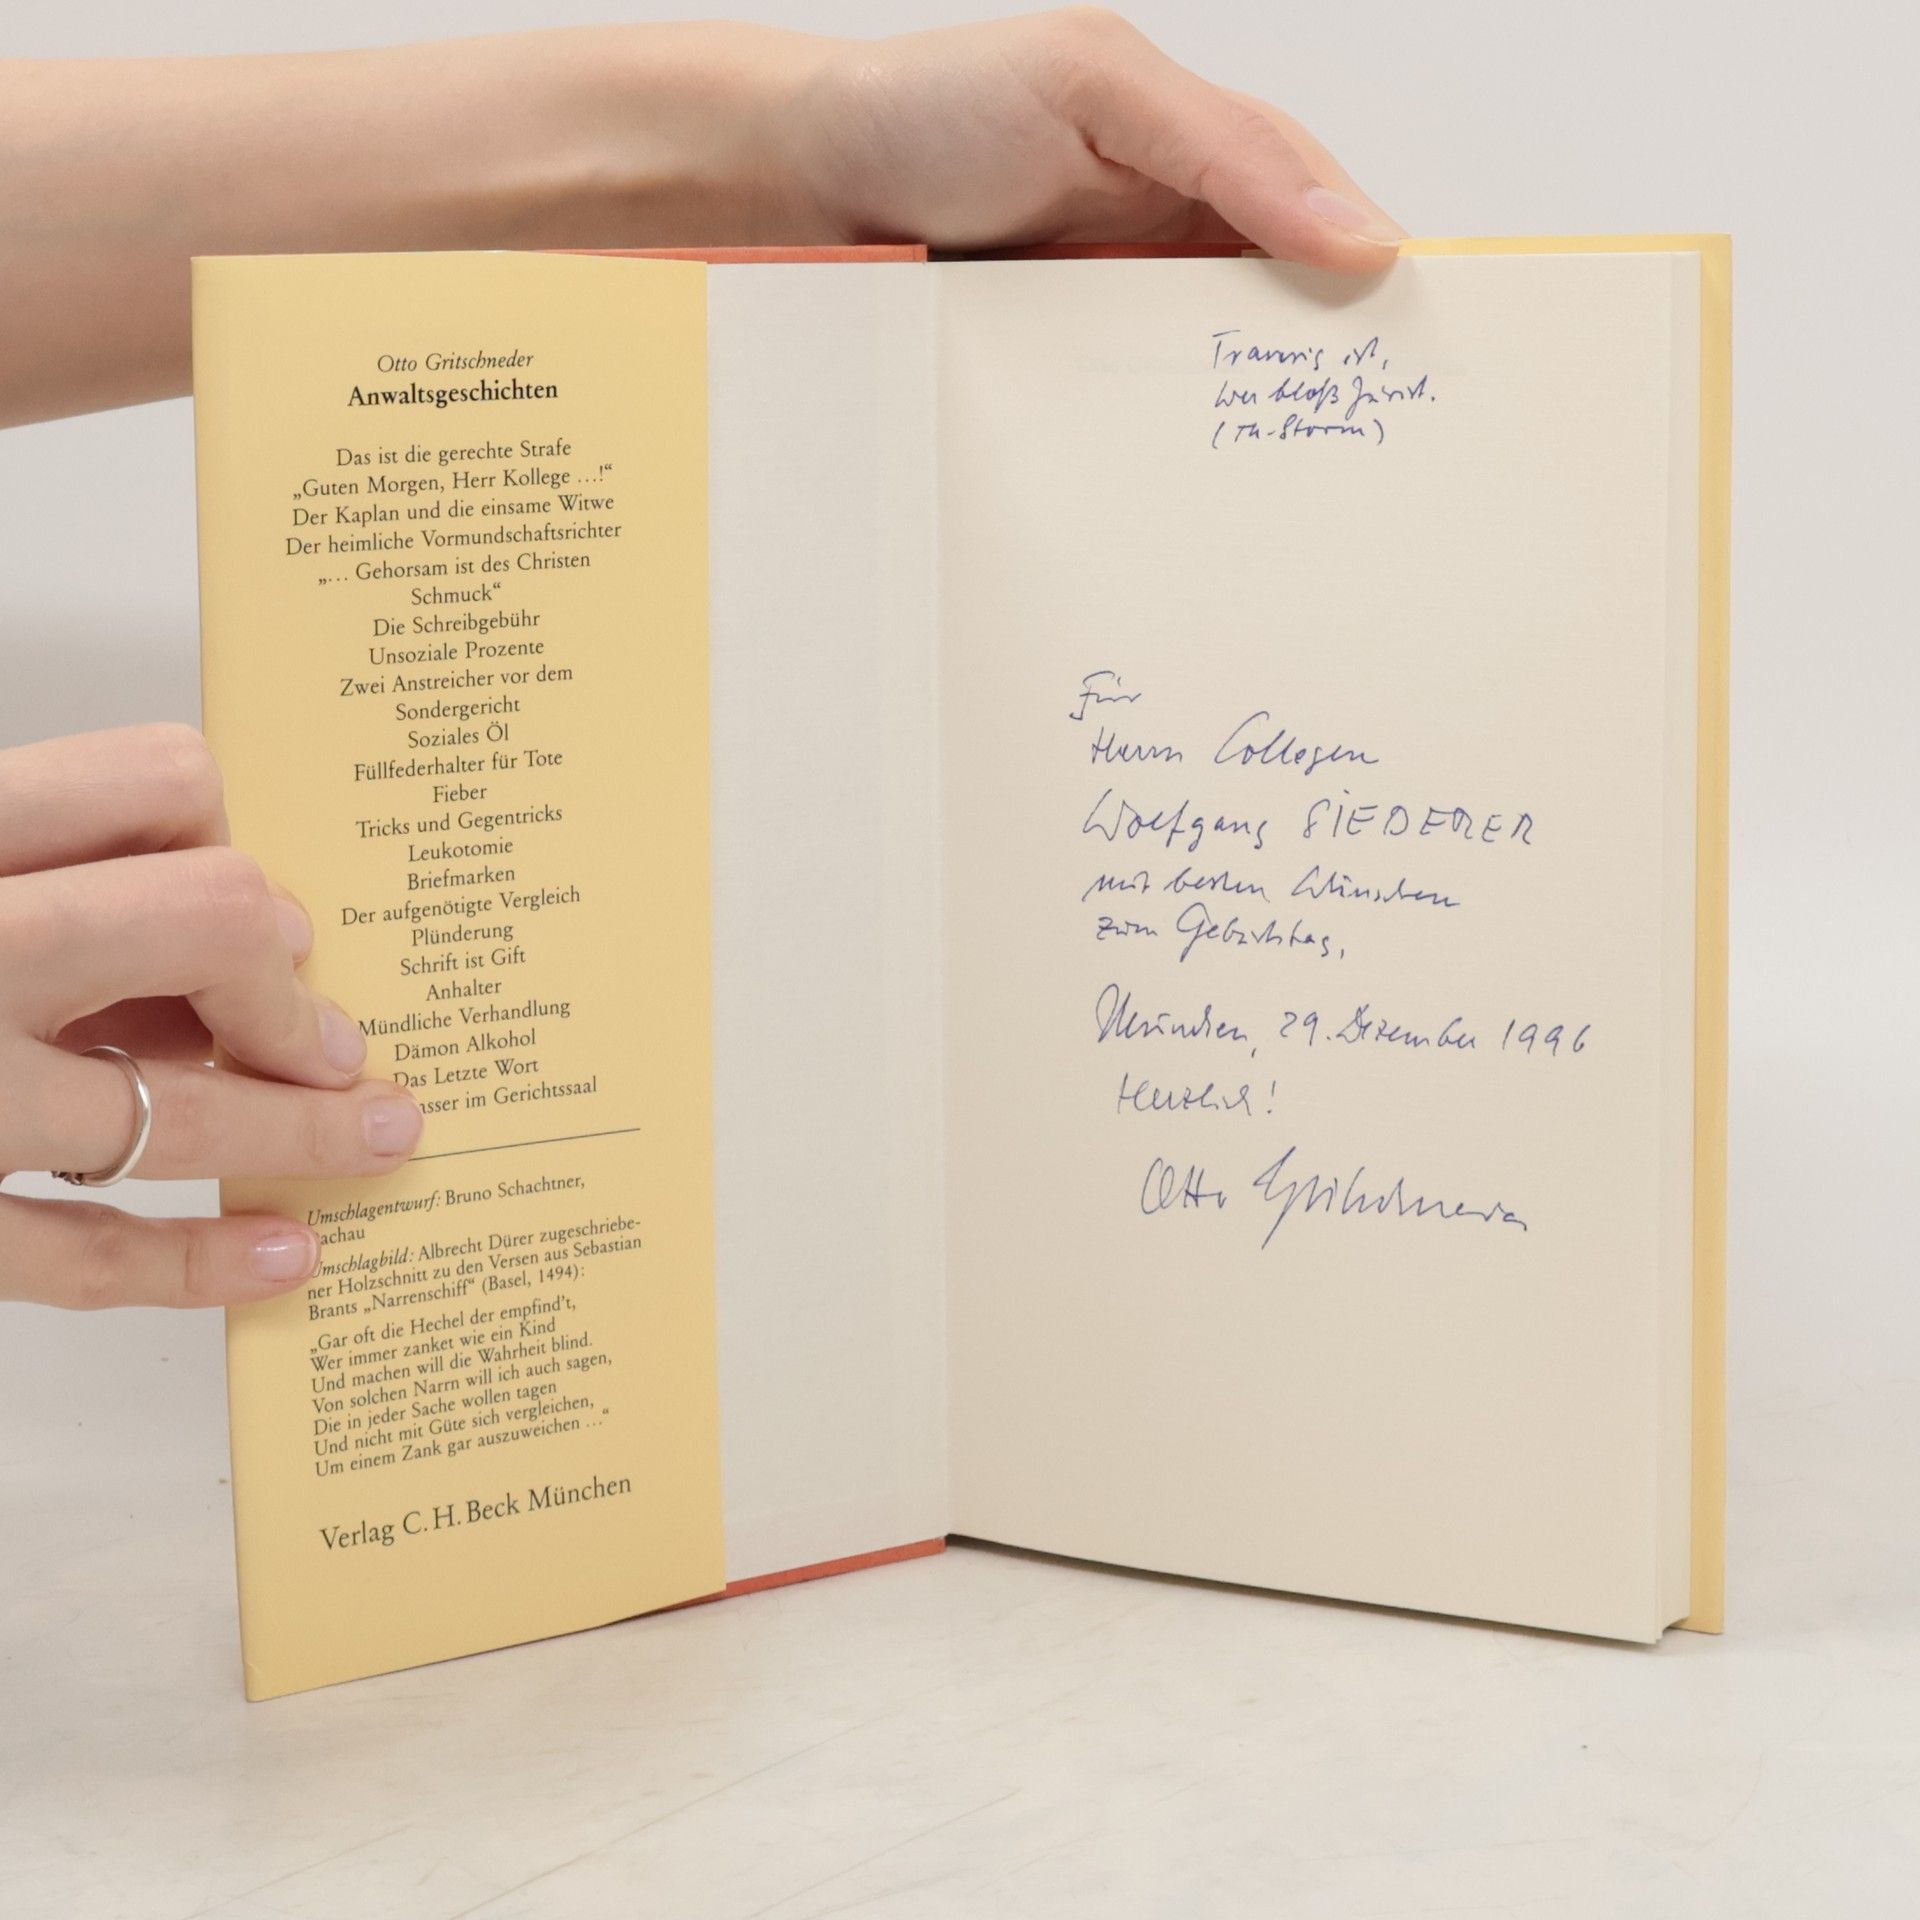 Otto Gritschneder
Anwaltsgeschichten
Das ist die gerechte Strafe
„Guten Morgen, Herr Kollege …!“
Der Kaplan und die einsame Witwe
Der heimliche Vormundschaftsrichter
„… Gehorsam ist des Christen
Schmuck“
Die Schreibgebühr
Unsoziale Prozente
Zwei Anstreicher vor dem
Sondergericht
Soziales Öl
Füllfederhalter für Tote
Fieber
Tricks und Gegentricks
Leukotomie
Briefmarken
Der aufgenötigte Vergleich
Plünderung
Schrift ist Gift
Anhalter
Mündliche Verhandlung
Dämon Alkohol
Das Letzte Wort
asser im Gerichtssaal
Umschlagentwurf: Bruno Schachtner,
achau
Umschlagbild: Albrecht Dürer zugeschriebe-
ner Holzschnitt zu den Versen aus Sebastian
Brants „Narrenschiff“ (Basel, 1494):
„Gar oft die Hechel der empfind’t,
Wer immer zanket wie ein Kind
Und machen will die Wahrheit blind.
Von solchen Narrn will ich auch sagen,
Die in jeder Sache wollen tagen
Und nicht mit Güte sich vergleichen,
Um einem Zank gar auszuweichen …“
Verlag C. H. Beck München
Traurig ist,
wer bloß Jurist.
(Th-Storm)
Für
Herrn Collegen
Wolfgang SIEDERER
mit besten Wünschen
zum Geburtstag,
München, 29. Dezember 1996
Herzlich!
Otto Gritschneder